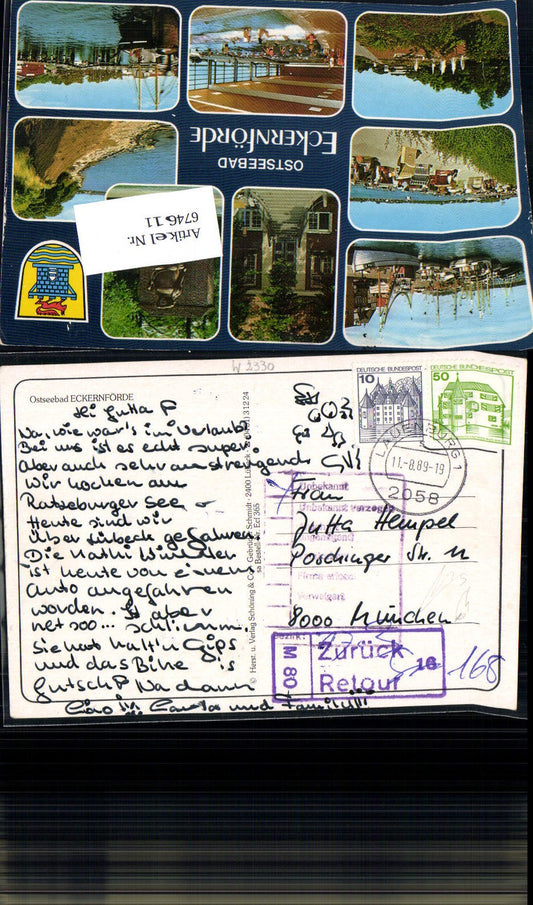 OSTSEEBAD
ECKERNFÖRDE
Artikel Nr.
6746 11
W 2330
Ostseebad ECKERNFÖRDE
Hei Jutta P
Na, wie war's im Urlaub
Bei uns ist es echt super
Aber auch sehr anstrengend
Wir hocken am
Ratzeburger See
Heute sind wir
über Lübeck gefahren
Die Kathi
ist heute von einem
Auto angefahren
worden. Is aber
net sooo... schlimm.
Sie hat halt'n Gips
und das Bike is
futsch P Na dann
Ciao und Familiiii
© Herst. u. Verlag Schöning & Co + Gebrüder Schmidt · 2400 Lübeck
Bestell-Nr. Ecf 365
10 DEUTSCHE BUNDESPOST
50 DEUTSCHE BUNDESPOST
LAUENBURG 1
11.-8.89-19
2058
Unbekannt
Unbekannt verzogen
Firma erlosch
Verweigert
Frau
Jutta Hempel
Poschinger Str. 11
8000 München
Bezirk:
M 80
Zurück
Retour
16
168